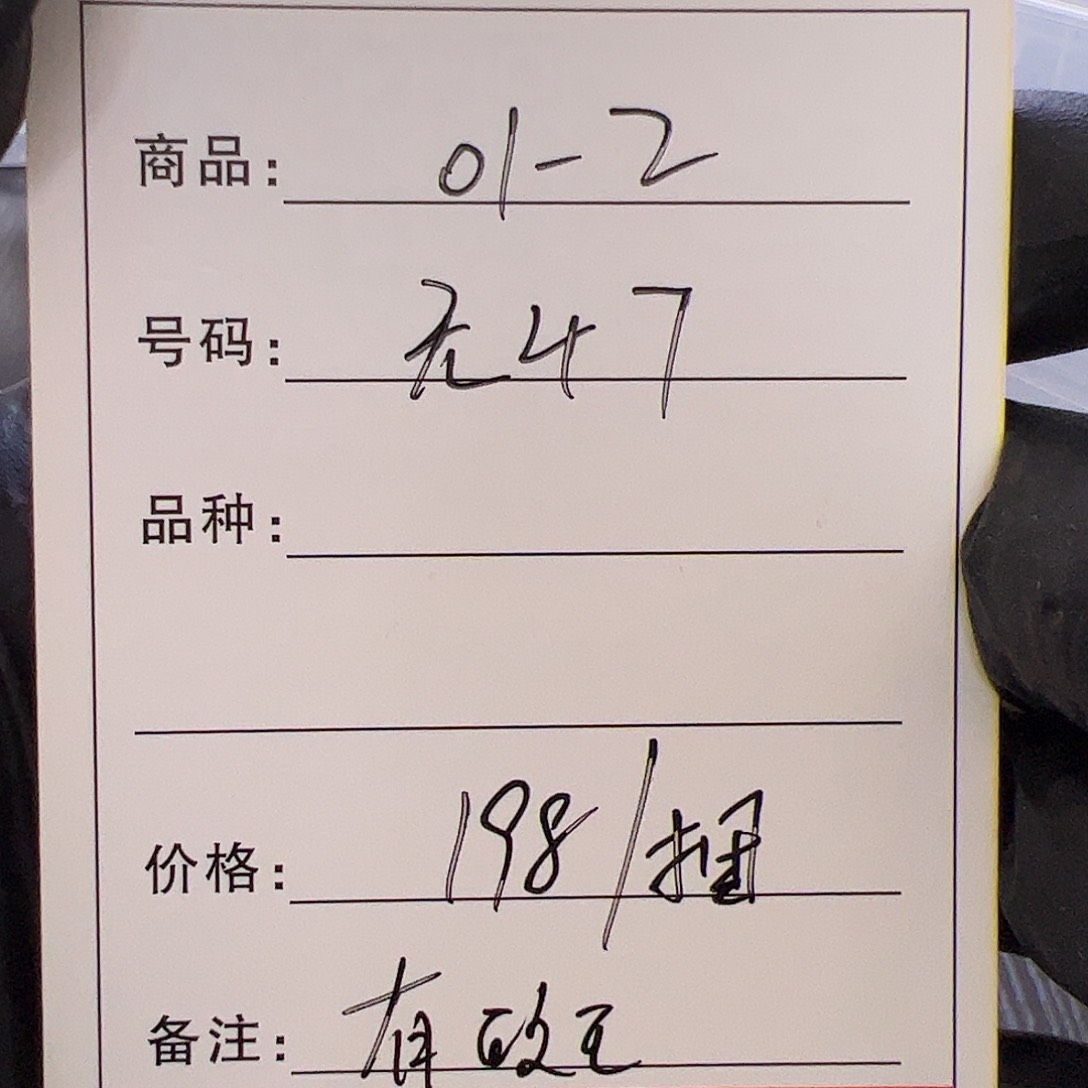 商品: 01-2
号码: 无47
品种:
价格: 198/捆
备注: 有